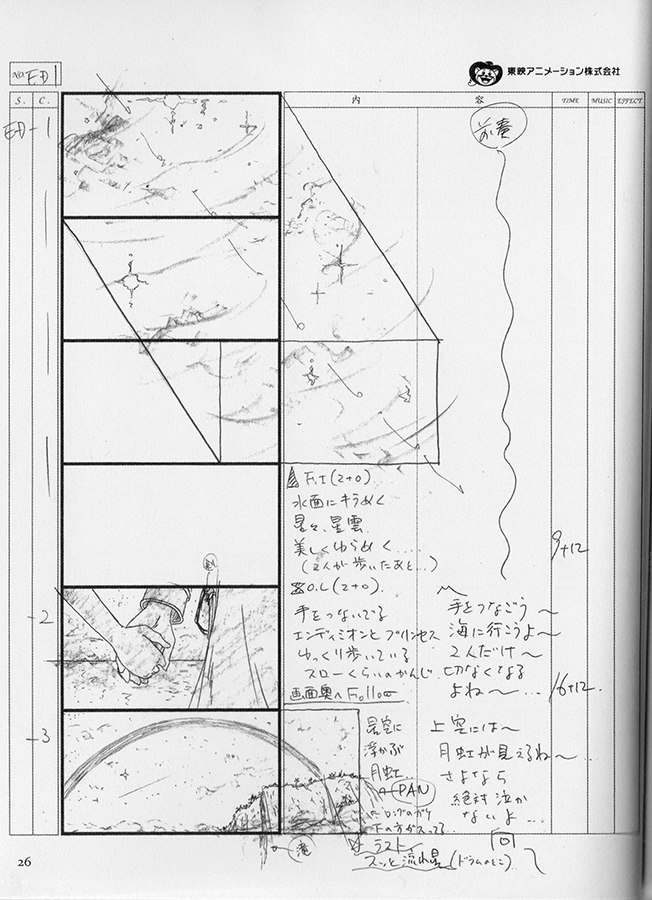 NO. ED 1
東映アニメーション株式会社
S. C. 内 容 TIME MUSIC EFFECT
ED-1
前奏
F.I (2+0)
水面にキラめく
星々、星雲
美しくゆらめく....
(2人が歩いたあと...)
9+12
O.L (2+0)
-2
手をつないでる
エンディミオンとプリンセス
ゆっくり歩いている
スローくらいのかんじ
画面奥へ Follow
手をつなごう〜
海に行こうよ〜
2人だけ〜
切なくなる
よね〜...
16+12
-3
星空に
浮かぶ
月虹
PAN
ラスト、
スッと流れ星 (ドラムのとこ)
上空には〜
月虹が見えるね〜...
さよなら
絶対泣か
ないよ...
回
滝
26